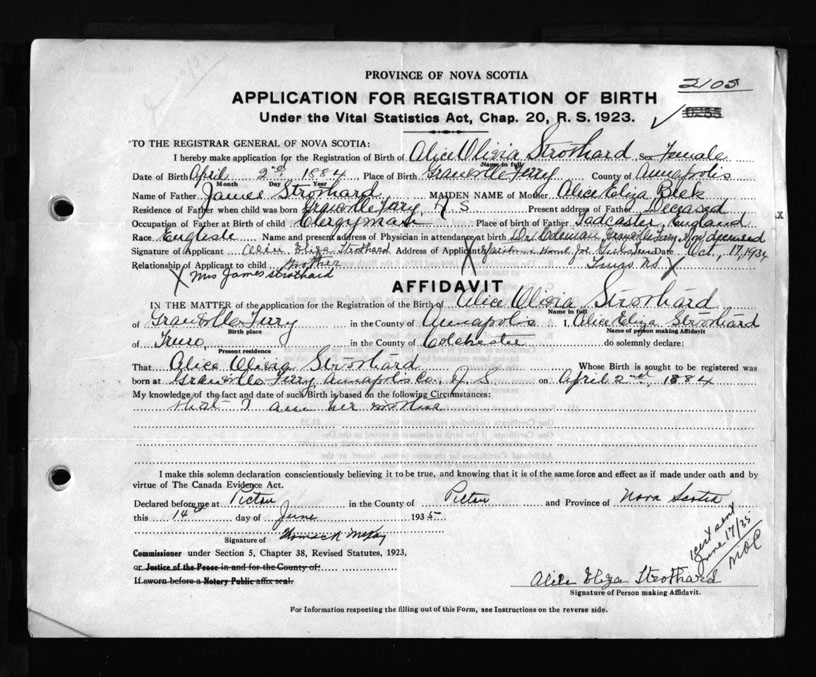 PROVINCE OF NOVA SCOTIA
2105
APPLICATION FOR REGISTRATION OF BIRTH
Under the Vital Statistics Act, Chap. 20, R. S. 1923.
TO THE REGISTRAR GENERAL OF NOVA SCOTIA:
I hereby make application for the Registration of Birth of Alice Olivia Strothard Sex Female
Name in full
Date of Birth April 2nd 1884 Place of Birth Granville Ferry County of Annapolis
Month Day Year
Name of Father James Strothard MAIDEN NAME of Mother Alice Eliza Beck
Residence of Father when child was born Granville Ferry, N.S. Present address of Father Deceased
Occupation of Father at Birth of child Clergyman Place of birth of Father Tadcaster, England
Race English Name and present address of Physician in attendance at birth Dr. Coleman, Granville Ferry, Now deceased
Signature of Applicant Alice Eliza Strothard Address of Applicant Home for Date Oct, 17, 1934
Relationship of Applicant to child Mother Truro N.S. X
X Mrs James Strothard
AFFIDAVIT
IN THE MATTER of the application for the Registration of the Birth of Alice Olivia Strothard
Name in full
of Granville Ferry in the County of Annapolis I, Alice Eliza Strothard
Birth place Name of person making Affidavit
of Truro, in the County of Colchester do solemnly declare:
Present residence
That Alice Olivia Strothard Whose Birth is sought to be registered was
born at Granville Ferry Annapolis Co., N S on April 2nd, 1884
My knowledge of the fact and date of such Birth is based on the following Circumstances:
that I am her mother
I make this solemn declaration conscientiously believing it to be true, and knowing that it is of the same force and effect as if made under oath and by
virtue of The Canada Evidence Act.
Declared before me at Pictou in the County of Pictou and Province of Nova Scotia
this 14th day of June 1935
Signature of
Commissioner under Section 5, Chapter 38, Revised Statutes, 1923,
or Justice of the Peace in and for the County of:
If sworn before a Notary Public affix seal.
cert sent
June 17/35
MOC
Alice Eliza Strothard
Signature of Person making Affidavit.
For Information respecting the filling out of this Form, see Instructions on the reverse side.